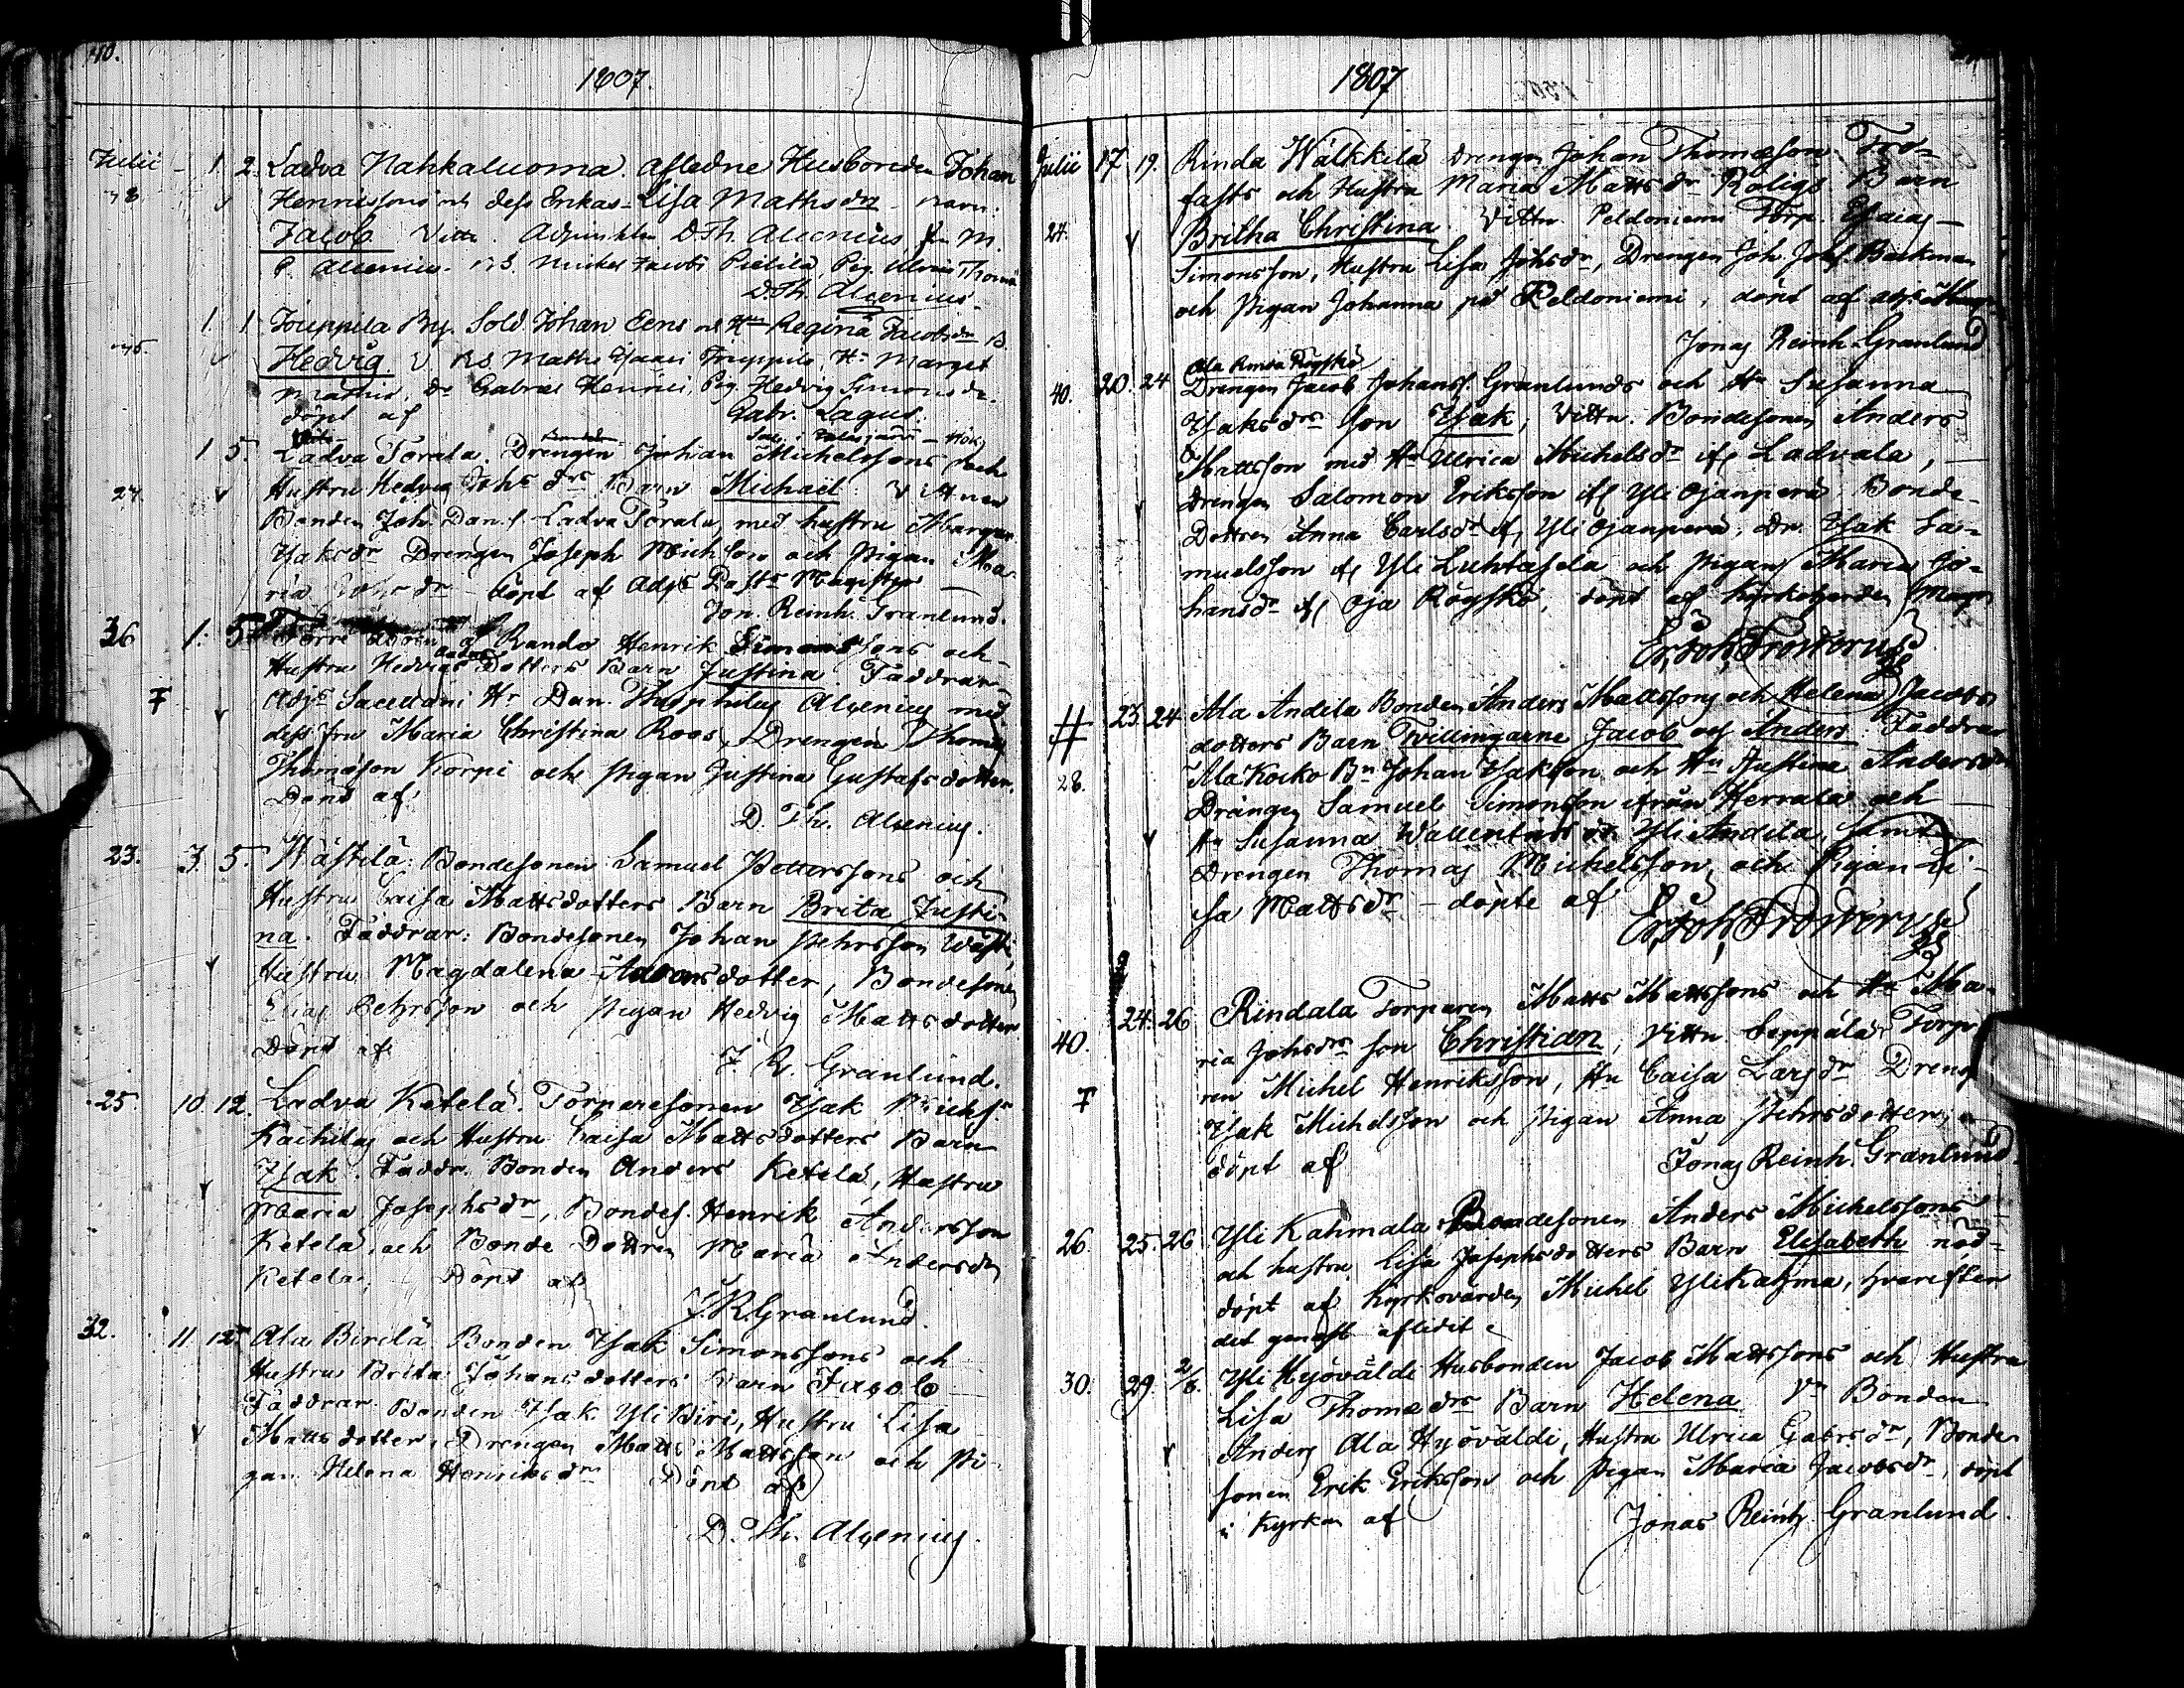 40.
1807.
Julii 1. 2. Ladva Nahkaluoma. Afledne Husbonden Johan
Henrissons och dess Enkas Lisa Mathsdr barn:
Jacob Vittn. Adjunkten D. Th. Alcenius, fru M.
C. Alcenius. BS. Michel Jacobs Pietilä, Pig. Ulrica Thomæ
D. Th. Alcenius
1. 1. Jouppila By. Sold. Johan Eens och Hu Regina Jacobsdr B.
Hedvig V. BS. Maths Isaaci Jouppila, Hu Marget
Mathsd. Dr Gabriel Henrici, Pig. Hedvig Simonsdr.
döpt af Gabr. Lagus.
1 5. Ladva Törala. Drengen Johan Michelssons och
24. Hustru Hedvig Johsdrs Barn Michael. Vittnen
Bonden Joh. Dan.s. Ladva Törala, med hustru Margar.
Isaksdr Drengen Joseph Michsson och Pigan Ma-
ria dr – döpt af Adjs Past: Magister
Jon. Reinh. Granlund.
36 1. 5. Rando Henrik Simonssons och
Hustru Hedvigs Dotters Barn Justina. Faddrar
F Adjs Sacellani Hr Dan. Theophilus Alcenius med
dess fru Maria Christina Roos, Drengen Thomas
Thomasson Korpi och Pigan Justina Gustafsdotter.
Döpt af
D. Th. Alcenius.
23. 3. 5. Wästilä: Bondesonen Samuel Pettersons och
Hustru Caisa Mattsdotters Barn Brita Justi-
na. Faddrar: Bondesonen Johan Pehrsson Wästi,
Hustru Magdalena Adamsdotter, Bondesonen
Elias Pehrsson och Pigan Hedvig Mattsdotter
Döpt af
J. R. Granlund.
25. 10. 12. Ladva Ketelä. Torparesonen Isak Michs:s
Kachilas och Hustru Caisa Mattsdotters Barn
Isak. Faddr. Bonden Anders Ketelä, Hustru
Maria Josephsdr, Bondes. Henrik Andersson
Ketelä, och Bonde Dottren Maria Andersdr
Ketelä. Döpt af
J. R. Granlund.
32. 11. 12. Ala Birilä Bonden Isak Simonssons och
Hustru Brita Johansdotters barn Jacob
Faddrar. Bonden Isak Yli Biri, Hustru Lisa
Mattsdotter, Drengen Matts Mattsson och Pi-
gan Helena Henriksdr Döpt af
D. Th. Alcenius.
1807
Julii 17. 19. Rinda Wälkkilä drengen Johan Thomæson Tro-
fasts och Hustru Maria Mattsdr Roligs Barn
24. Britha Christina. Vittn. Peldoniemi Torp. Esaias
Simonsson, Hustru Lisa Johsdr, Drengen Joh. Johs. Backman
och Pigan Johanna på Peldoniemi, döpt af
Jonas Reinh. Granlund
Ala Rinda Röyskö
40. 20. 24 Drengen Jacob Johanss. Granlunds och Hu Susanna
Isaksdrs son Isak; Vittn. Bondesonen Anders
Mattsson med Hu Ulrica Michelsdr if. Ladvala,
Drengen Salomon Eriksson if. Yli Ojanperä, Bonde
Dottren Anna Carlsdr if. Yli Ojanperä, Dr. Isak Sa-
muelsson if. Yli Luhtasela och Pigan Maria Jo-
hansdr if. Oja Röyskö, döpt af Kyrkoherden Mag.
Er. Joh. Frosterus
# 23. 24 Ala Andila Bonden Anders Mattssons och Helena Jacobs
dotters Barn Tvillingarne Jacob och Anders. Faddrar
28. Ala Kocko Bn Johan Isaksson och Hu Justina Andersdr
Drängen Samuel Simonsson ifrån Herrala och
Hu Susanna dr Yli Andila, samt
Drengen Thomas Michelsson, och Pigan Li-
sa Mattsdr – döpte af
Er. Joh. Frosterus
24. 26 Rindala Torparen Matts Mattssons och Hu Ma-
40. ria Johsdrs son Christian, Vittn. Seppälä Torpa
ren Michel Henriksson, Hu Caisa Larsdr Dreng
F Isak Michelsson och Pigan Anna Pehrsdotter,
döpt af Jonas Reinh. Granlund.
26. 25. 26 Yli Kahmala Bondesonen Anders Michelssons
och hustru Lisa Josephsdotters Barn Elisabeth nöd-
döpt af Kyrkovärden Michel Yli Kahma, hvarefter
det genast aflidit
30. 29. 2/8. Yli Hyöväldi Husbonden Jacob Mattssons och Hustru
Lisa Thomædrs Barn Helena Vn Bonden
Anders Ala Hyöväldi, Hustru Ulrica Gabrsdr, Bonde
sonen Erik Eriksson och Pigan Maria Jacobsdr, döpt
i Kyrkan af Jonas Reinh. Granlund.